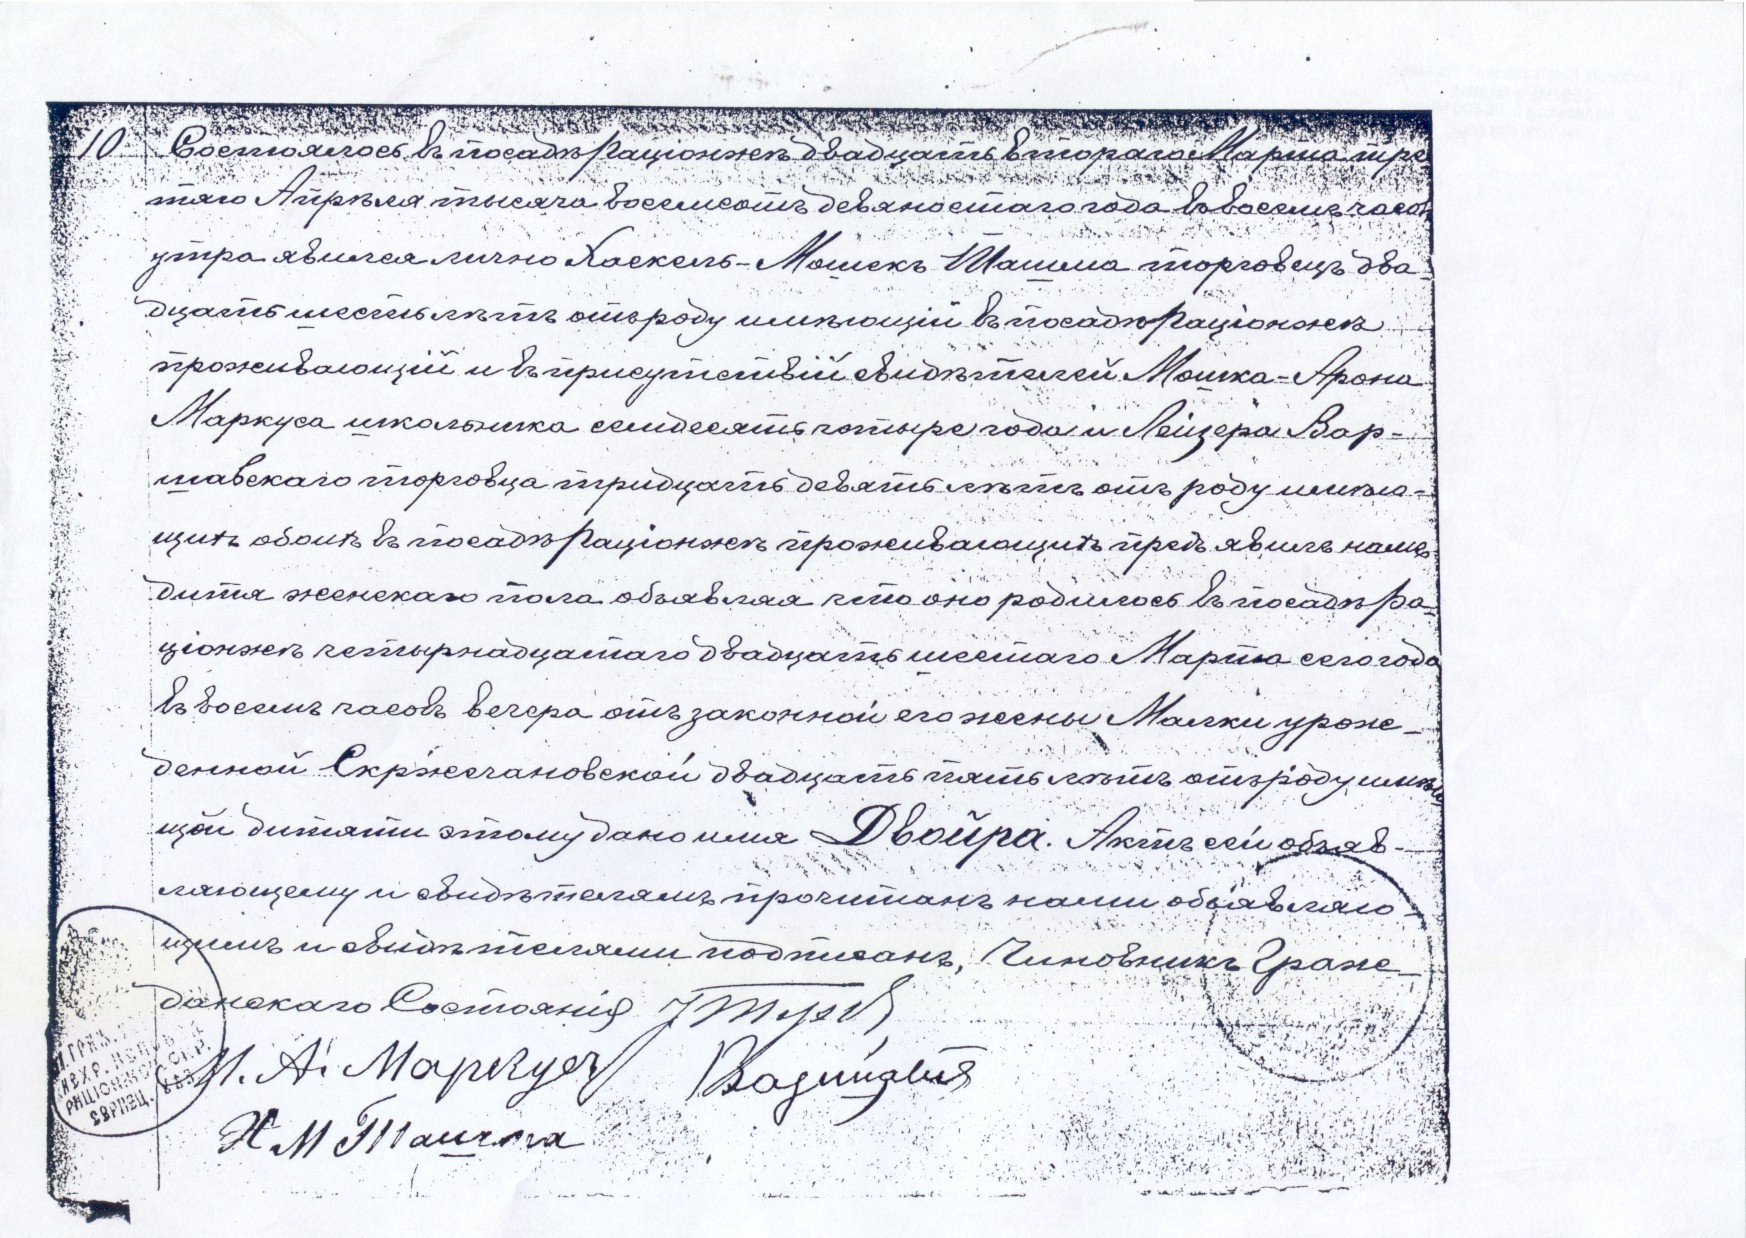 10 Состоялось въ посадѣ Раціонжѣ двадцать втораго Марта тре
тяго Апрѣля тысяча восемсотъ девяностаго года въ восемъ часов
утра явился лично Хаскель-Мошекъ Ташма торговецъ два-
дцать шесть лѣтъ отъ роду имѣющій въ посадѣ Раціонжѣ
проживающій и въ присутствій свидѣтелей Мошка-Арона
Маркуса школьника семдесять четыре года и Лейзера Вар-
шавскаго торговца тридцать девять лѣтъ отъ роду имѣю-
щихъ обоихъ въ посадѣ Раціонжѣ проживающихъ предъявилъ намъ
дитя женскаго пола объявляя что оно родилось въ посадѣ Ра-
ціонжѣ четырнадцатаго двадцать шестаго Марта сего года
въ восемъ часовъ вечера отъ законной его жены Малки урож-
денной Скржечановской двадцать пять лѣтъ отъ роду имѣю
щой дитяти этому дано имя Двойра. Актъ сей объяв-
ляющему и свидѣтелямъ прочитанъ нами объявляю-
щимъ и свидѣтелями подписанъ, Чиновникъ Граж-
данскаго Состоянія
М. А. Маркусъ
Х М Ташма